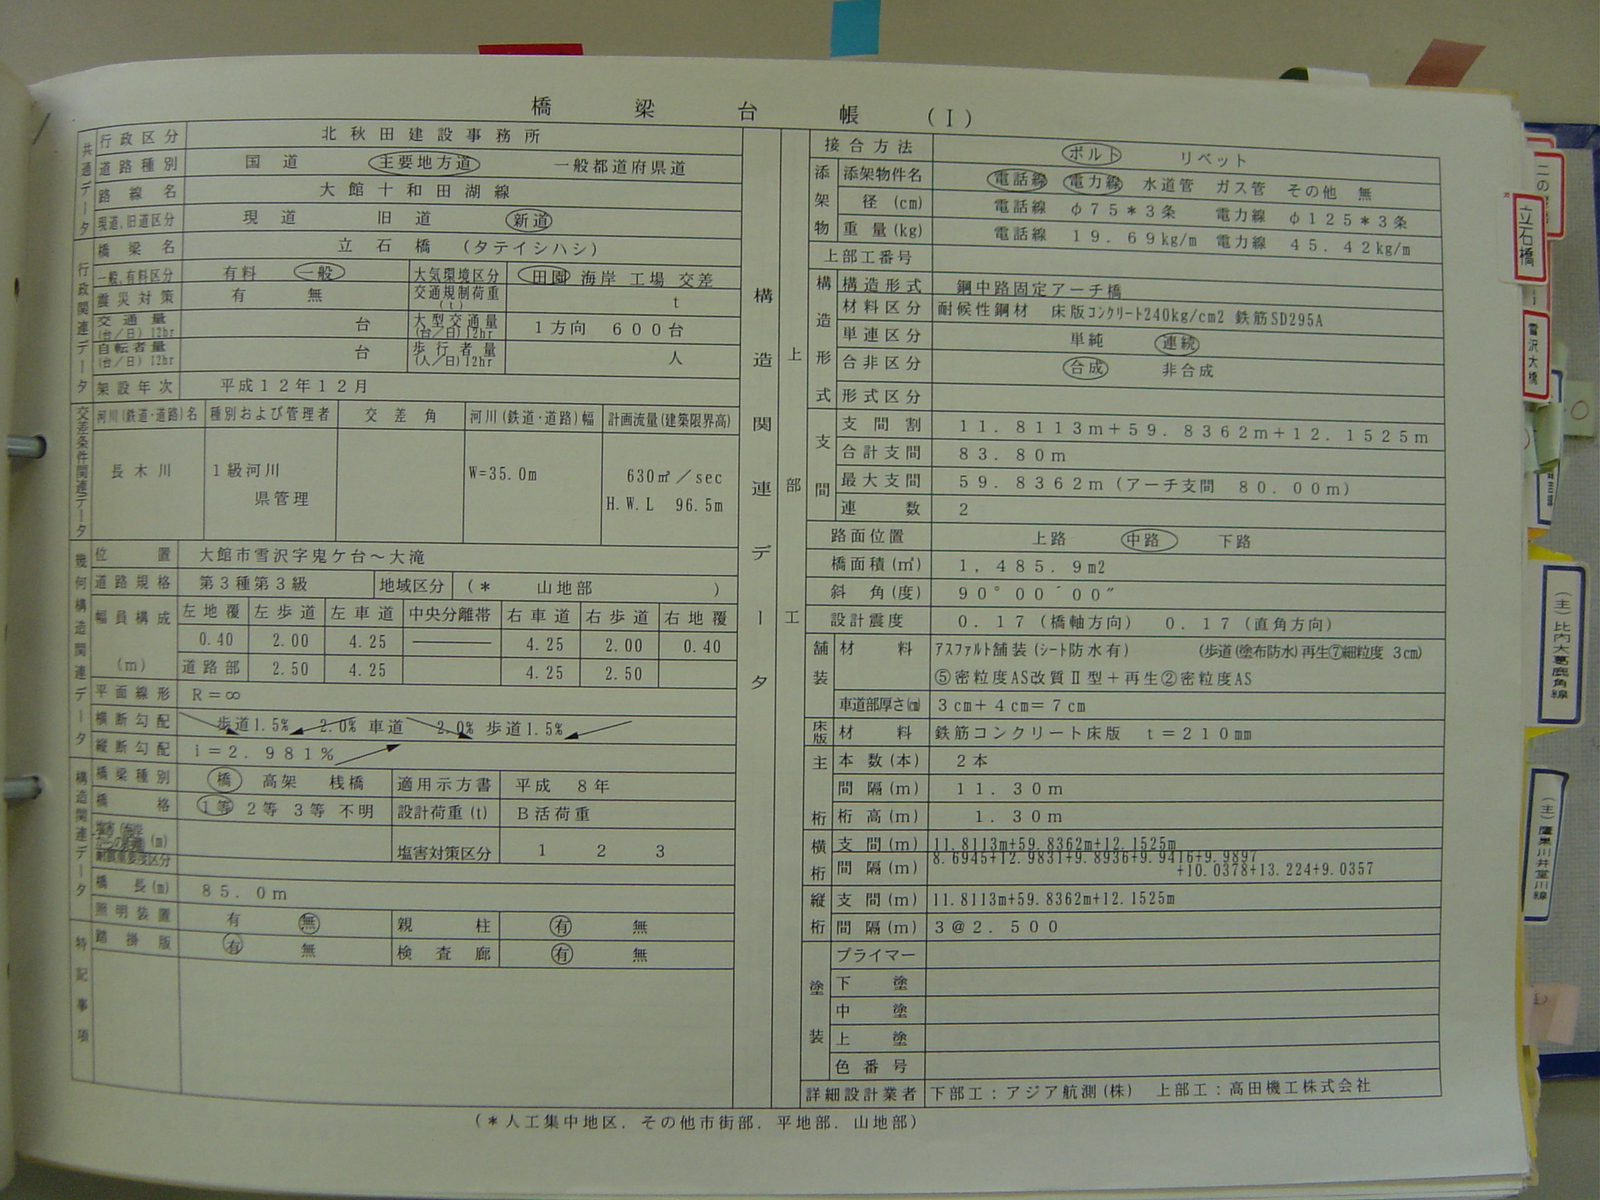 橋梁台帳 (Ⅰ)
共通データ
行政区分 北秋田建設事務所
道路種別 国道 主要地方道 一般都道府県道
路線名 大館十和田湖線
現道、旧道区分 現道 旧道 新道
行政関連データ
橋梁名 立石橋 (タテイシハシ)
一般、有料区分 有料 一般 大気環境区分 田園 海岸 工場 交差
震災対策 有 無 交通規制荷重(t) t
交通量(台/日)12hr 台 大型交通量(台/日)12hr 1方向 600台
自転車量(台/日)12hr 台 歩行者量(人/日)12hr 人
架設年次 平成12年12月
交差条件関連データ
河川(鉄道・道路)名 種別および管理者 交差角 河川(鉄道・道路)幅 計画流量(建築限界高)
長木川 1級河川 W=35.0m 630㎥/sec
県管理 H.W.L 96.5m
幾何構造関連データ
位置 大館市雪沢字鬼ケ台～大滝
道路規格 第3種第3級 地域区分 (* 山地部 )
幅員構成 (m) 左地覆 左歩道 左車道 中央分離帯 右車道 右歩道 右地覆
0.40 2.00 4.25 ――― 4.25 2.00 0.40
道路部 2.50 4.25 4.25 2.50
平面線形 R=∞
横断勾配 歩道1.5% 2.0% 車道 2.0% 歩道1.5%
縦断勾配 i=2.981%
構造関連データ
橋梁種別 橋 高架 桟橋 適用示方書 平成 8年
橋格 1等 2等 3等 不明 設計荷重(t) B活荷重
(m)
耐震重要度区分 塩害対策区分 1 2 3
橋長(m) 85.0m
照明装置 有 無 親柱 有 無
踏掛版 有 無 検査廊 有 無
特記事項
構造関連データ
上部工
接合方法 ボルト リベット
添架物
添架物件名 電話線 電力線 水道管 ガス管 その他 無
径(cm) 電話線 φ75*3条 電力線 φ125*3条
重量(kg) 電話線 19.69kg/m 電力線 45.42kg/m
上部工番号
構造形式
構造形式 鋼中路固定アーチ橋
材料区分 耐候性鋼材 床版コンクリート240kg/cm2 鉄筋SD295A
単連区分 単純 連続
合非区分 合成 非合成
形式区分
支間
支間割 11.8113m+59.8362m+12.1525m
合計支間 83.80m
最大支間 59.8362m(アーチ支間 80.00m)
連数 2
路面位置 上路 中路 下路
橋面積(㎡) 1,485.9m2
斜角(度) 90°00´00″
設計震度 0.17(橋軸方向) 0.17(直角方向)
舗装
材料 アスファルト舗装(シート防水有) (歩道(塗布防水)再生⑦細粒度 3cm)
⑤密粒度AS改質Ⅱ型+再生②密粒度AS
車道部厚さ(cm) 3cm+4cm=7cm
床版 材料 鉄筋コンクリート床版 t=210mm
主桁
本数(本) 2本
間隔(m) 11.30m
桁高(m) 1.30m
横桁
支間(m) 11.8113m+59.8362m+12.1525m
間隔(m) 8.6945+12.9831+9.8936+9.9416+9.9897
+10.0378+13.224+9.0357
縦桁
支間(m) 11.8113m+59.8362m+12.1525m
間隔(m) 3@2.500
塗装
プライマー
下塗
中塗
上塗
色番号
詳細設計業者 下部工:アジア航測(株) 上部工:高田機工株式会社
(*人工集中地区．その他市街部．平地部．山地部)
立石橋
雪沢大橋
(主)比内大葛鹿角線
(主)鷹巣川井堂川線